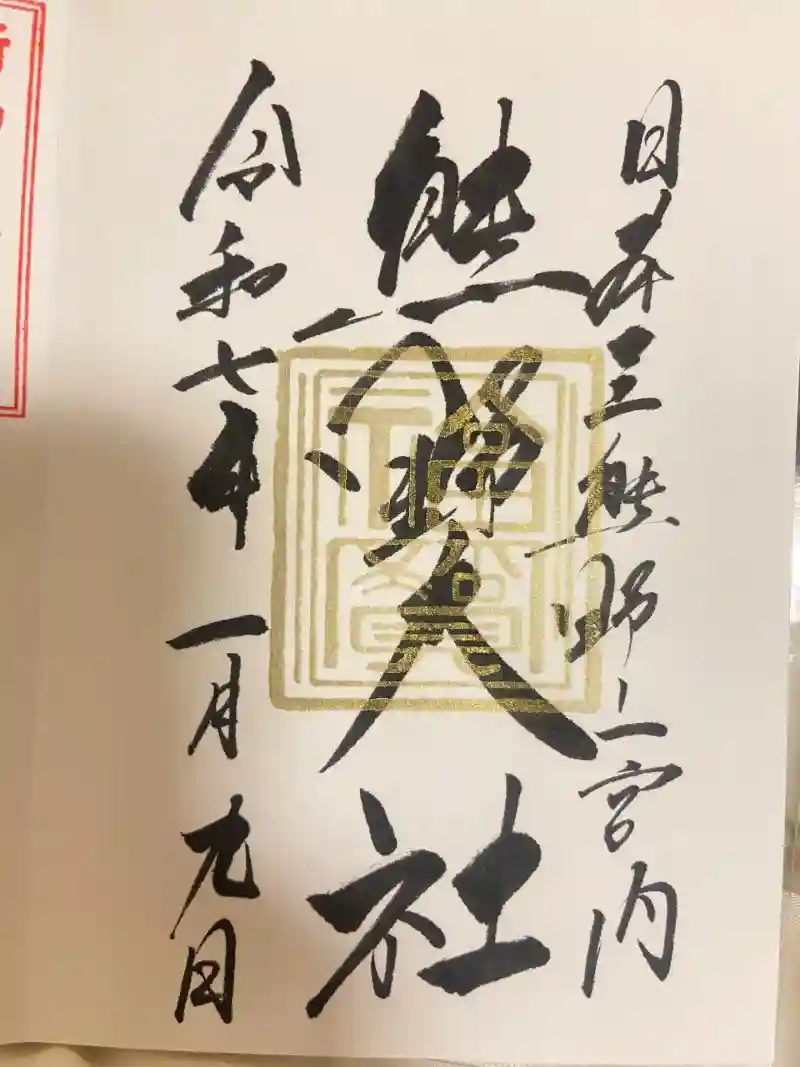 日本三熊野上宮内
熊野大社
令和七年一月九日